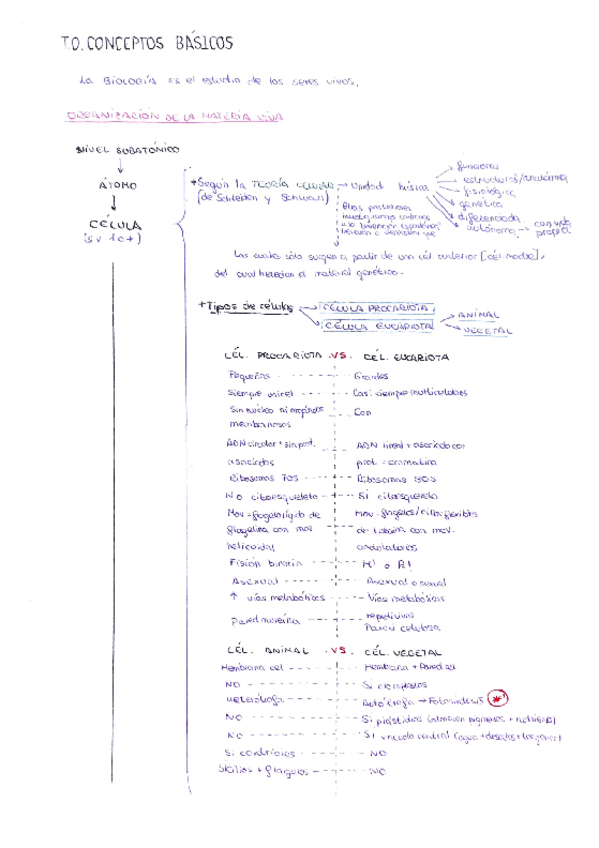 T.O. CONCEPTOS BÁSICOS
La BIOLOGÍA es el estudio de los seres vivos.
ORGANIZACIÓN DE LA MATERIA VIVA
NIVEL SUBATÓMICO
ÁTOMO
CÉLULA
+ Según la TEORÍA CELULAR → Unidad básica
(de Schleiden y Schwann)
funcional
estructural/anatómica
fisiológica
genética
diferenciada
autónoma → con vida propia
Las cuales sólo surgen a partir de una cél anterior [cél madre],
del cual heredan el material genético.
+ Tipos de células
CÉLULA PROCARIOTA
CÉLULA EUCARIOTA
ANIMAL
VEGETAL
CÉL. PROCARIOTA .VS. CÉL. EUCARIOTA
Pequeñas Grandes
Siempre unicel Casi siempre multicelulares
Sin núcleo ni orgánulos membranosos Con
ADN circular + sin prot. asociadas ADN lineal + asociado con prot. = cromatina
Ribosomas 70S Ribosomas 80S
NO citoesqueleto Sí citoesqueleto
Mov = flagelo rígido de flagelina con mov helicoidal Mov = flagelos/cilios flexibles de tubulina con mov. ondulatorios
Fisión binaria M! o R!
Asexual Asexual o sexual
↑ vías metabólicas Vías metabólicas
Pared mureína Pared celulosa
CÉL. ANIMAL .VS. CÉL. VEGETAL
Membrana cel Membrana + Pared cel
NO Sí cloroplastos
Heterótrofa Autótrofa → Fotosíntesis *
NO Sí plástidos (almacen pigmentos + nutrientes)
NO Sí vacuola central
Sí centríolos NO
Sí cilios + flagelos NO